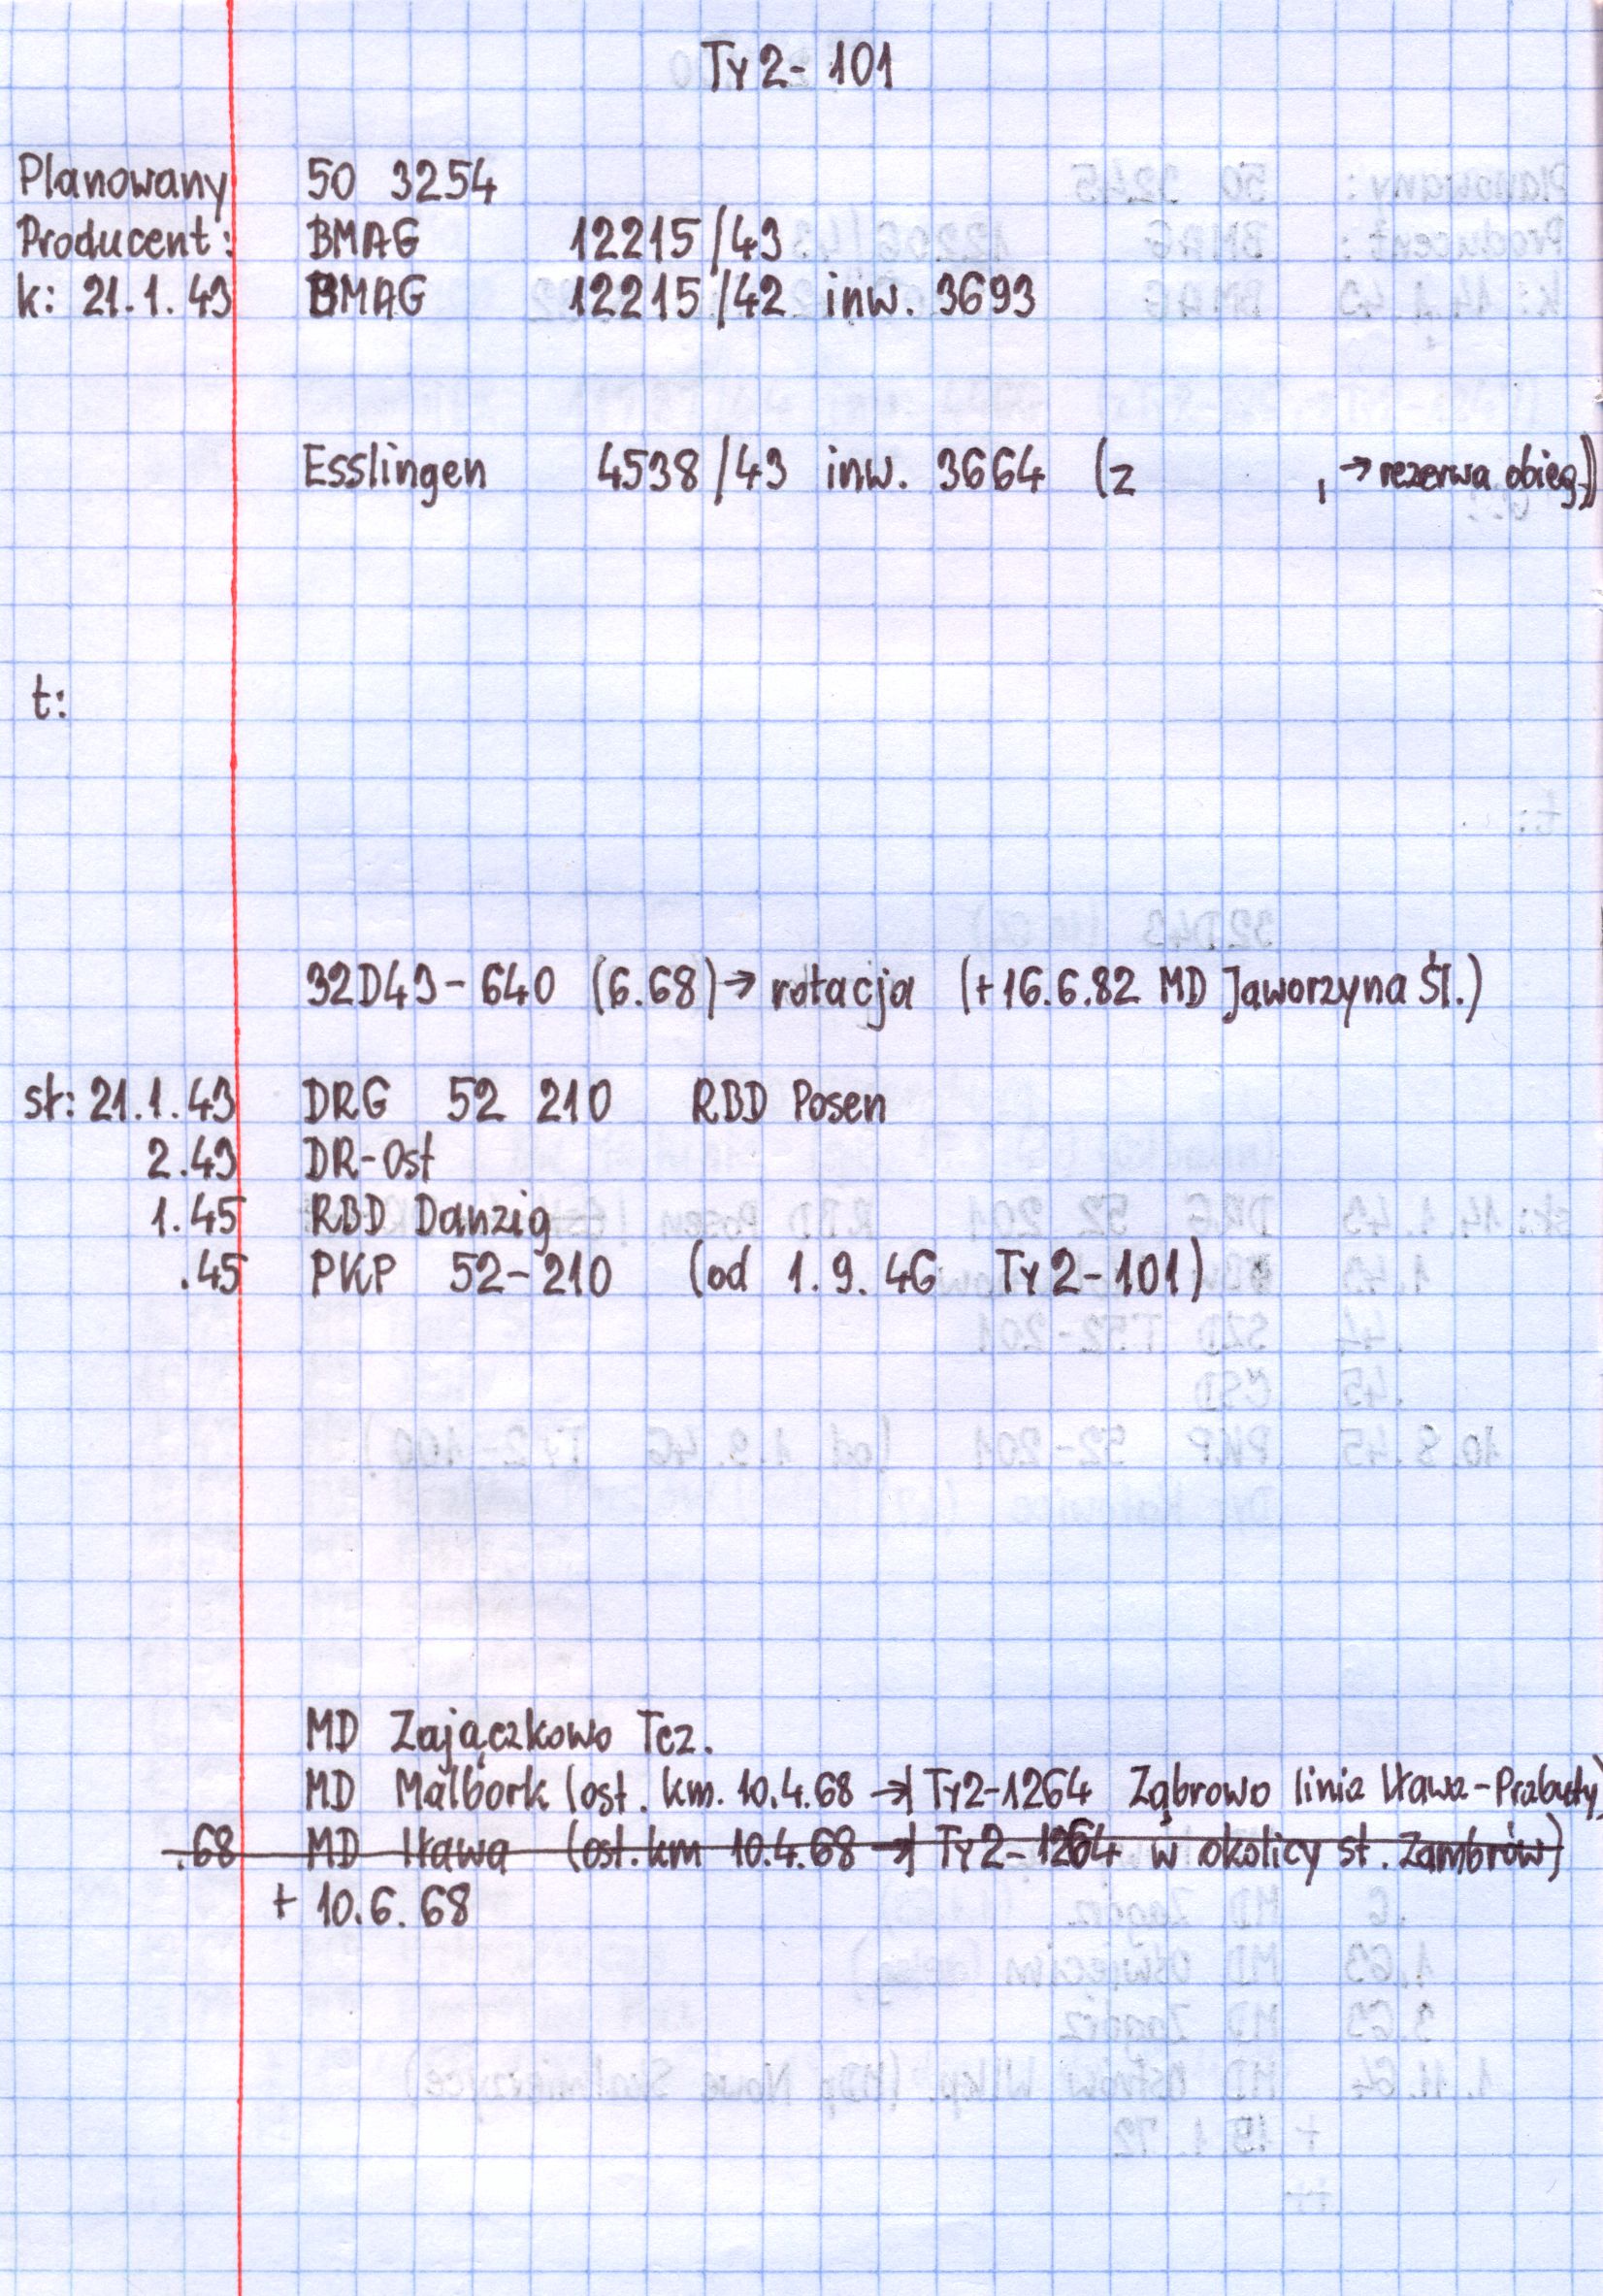 Ty2-101
Planowany 50 3254
Producent: BMAG 12215/43
k: 21.1.43 BMAG 12215/42 inw. 3693
Esslingen 4538/43 inw. 3664 (z , → rezerwa obieg.)
t:
32D43-640 (6.68) → rotacja (+16.6.82 MD Jaworzyna Śl.)
st: 21.1.43 DRG 52 210 RBD Posen
2.43 DR-Ost
1.45 RBD Danzig
.45 PKP 52-210 (od 1.9.46 Ty2-101)
MD Zajączkowo Tcz.
MD Malbork (ost. km. 10.4.68 →| Ty2-1264 Ząbrowo linia Iława-Prabuty)
.68 MD Iława (ost. km 10.4.68 →| Ty2-1264 w okolicy st. Zambrów)
+ 10.6.68